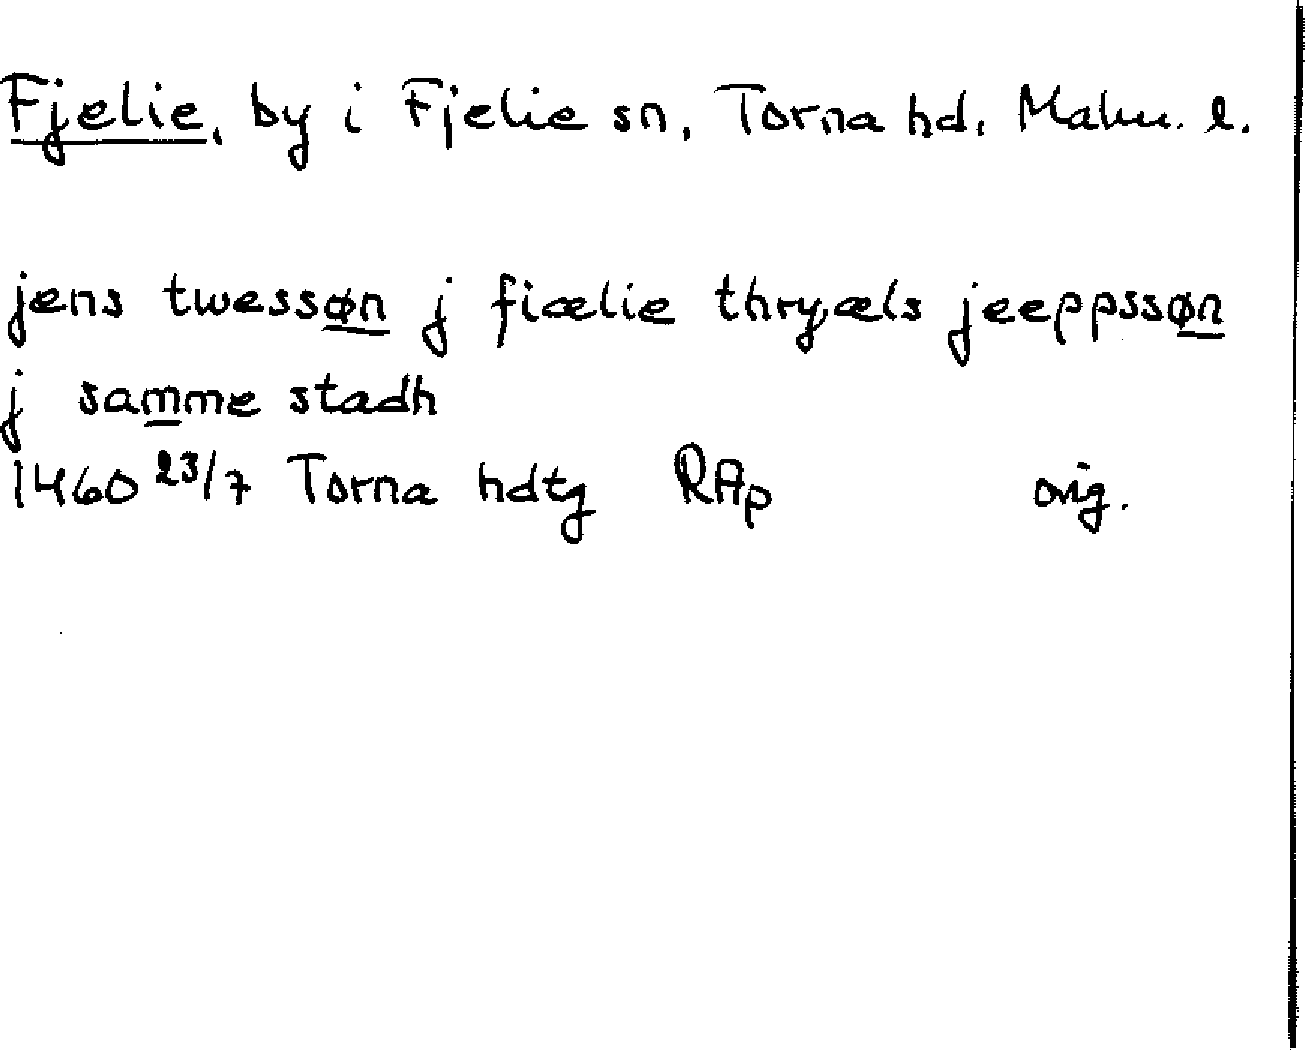 Fjelie, by i Fjelie sn, Torna hd, Malm. l.
jens twessøn j fiælie thryæls jeeppssøn
j samme stadh
1460 23/7 Torna hdtg RAp orig.